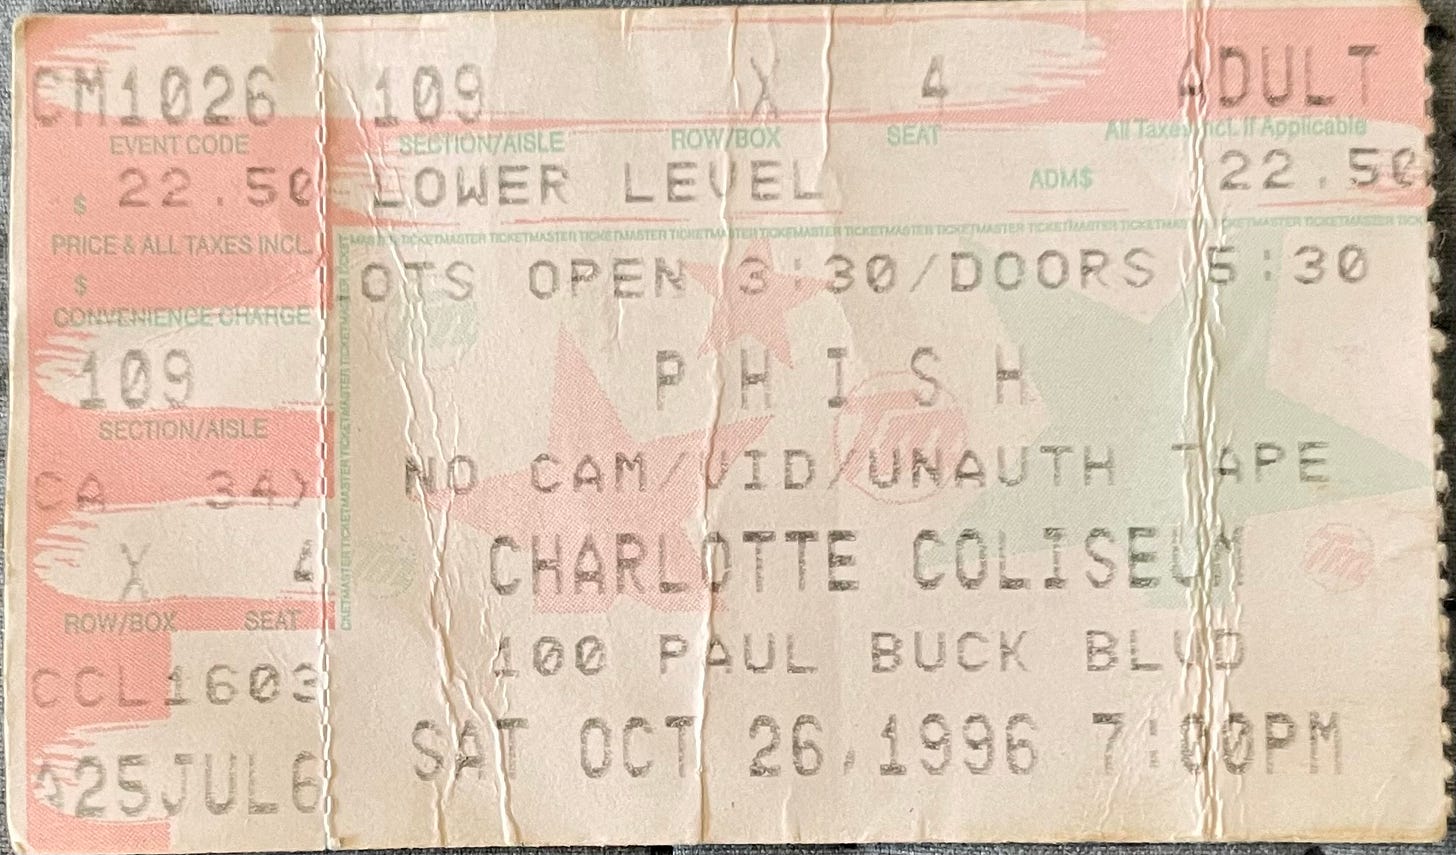 CM1026 109 X 4 ADULT
EVENT CODE SECTION/AISLE ROW/BOX SEAT All Taxes Incl. If Applicable
$ 22.50 LOWER LEVEL ADM$ 22.50
PRICE & ALL TAXES INCL.
TICKETMASTER TICKETMASTER TICKETMASTER TICKETMASTER TICKETMASTER TICKETMASTER TICKETMASTER TICKETMASTER
$ OTS OPEN 3:30/DOORS 5:30
CONVENIENCE CHARGE
109 PHISH
SECTION/AISLE
CA 34) NO CAM/VID/UNAUTH TAPE
X 4 CHARLOTTE COLISEUM
ROW/BOX SEAT
CCL1603 100 PAUL BUCK BLVD
25JUL6 SAT OCT 26,1996 7:00PM